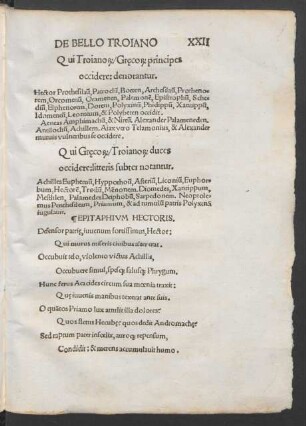 DE BELLO TROIANO XXII
Qui Troianoꝝ/Gręcoꝝ principes
occidere: denotantur.
Hector Protheſilaū, Patroclū, Boeten, Archeſilaū, Prothenorem, Orcomenū,
Dorem, Polyxinū, Phidippū, Xantippū,
Idumeuſ, Leonium, & Polybeten occidit.
Aeneas Amphimachū, & Nireū. Alexander Palamedem,
Antilochū, Achillem. Aiax vero Telamonius, & Alexander
mutuis vulneribus ſe occidere.
Qui Gręcoꝝ/Troianoꝝ duces
occidere: litteris ſubter notantur.
Achilles Euphemū, Hyppothoū, Aſteriū, Liconiū, Euphorbum,
Hectorē, Troilū, Mēnonem. Diomedes, Xantippum,
Palamedes Deiphobū, Sarpedonem. Neoptolemus
Pentheſileam, Priamum, & ad tumulū patris Polyxenā
iugulauit.
¶EPITAPHIVM HECTORIS.
Defenſor patrię, iuuenum fortiſſimus, Hector:
Qui murus miſeris ciuibus alter erat.
Occubuit telo, violento victus Achilli,
Occubuere ſimul, ſpeſq; ſaluſq; Phrygum.
Hunc ferus Aeacides circum ſua moenia traxit:
Quę iuuenis manibus texerat ante ſuis.
O quātos Priamo lux attulit illa dolores:
Quos fletus Hecubę: quos dedit Andromachę
Sed raptum pater infoelix, auroq; repenſum,
Condidit: & mœrens accumulauit humo.